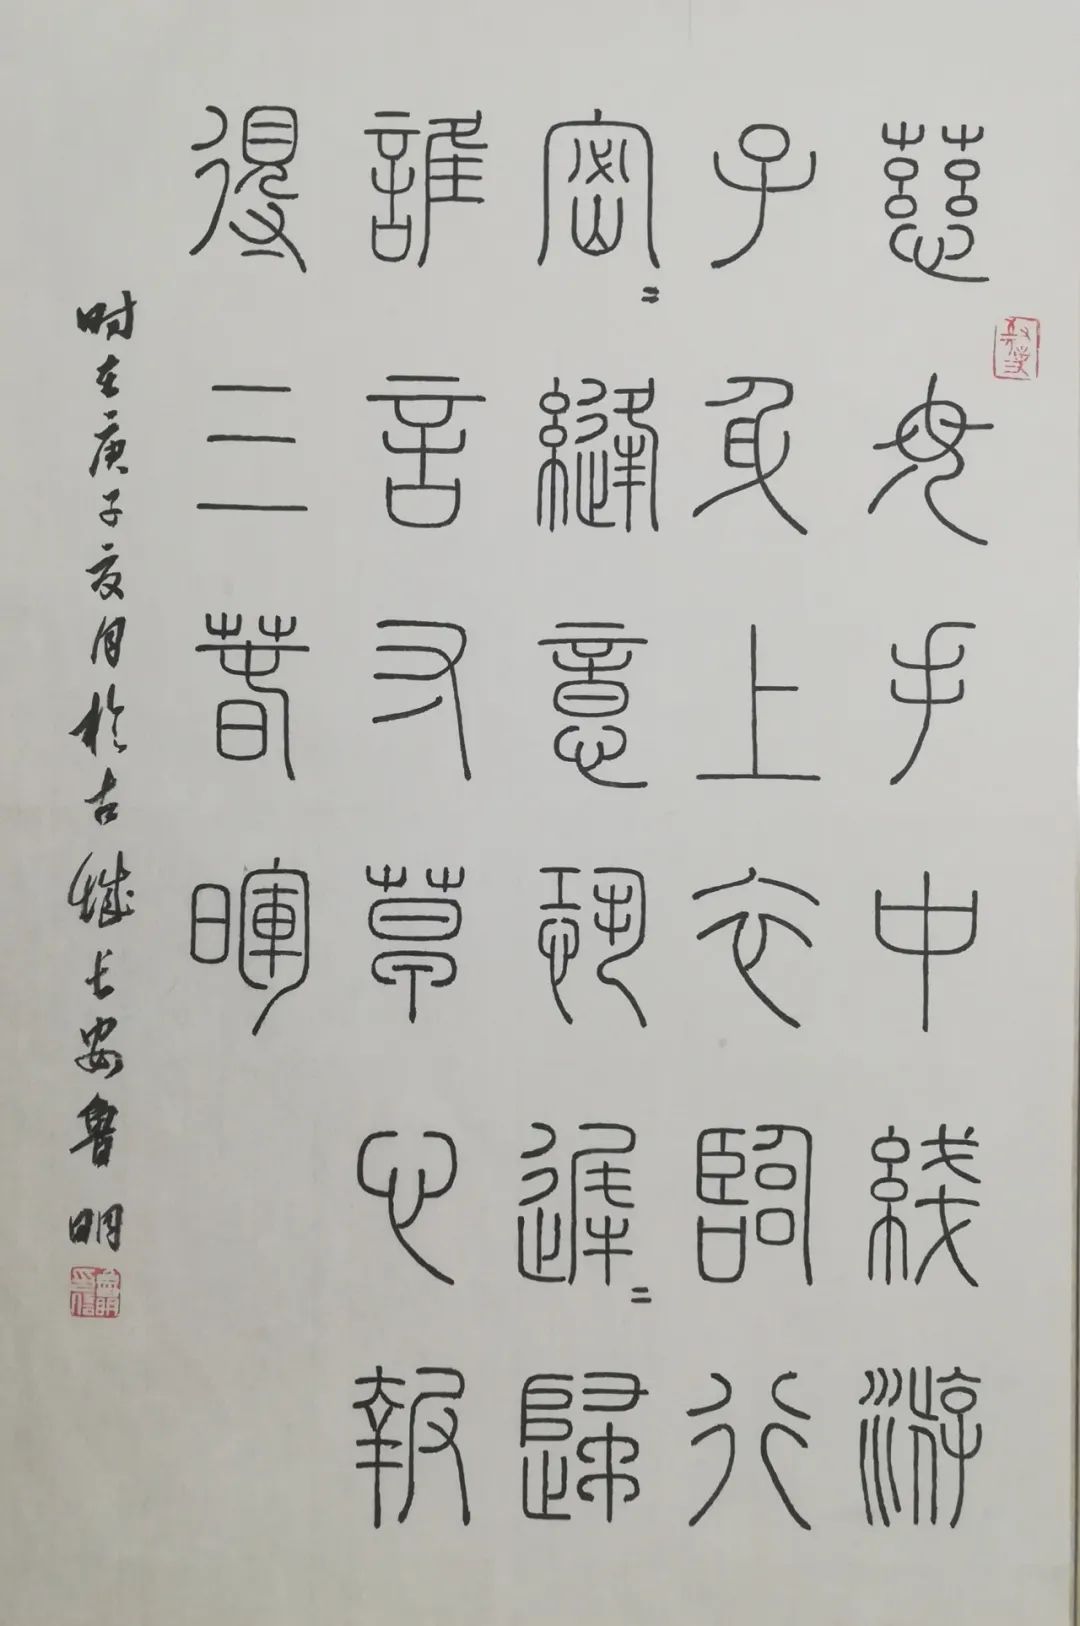 慈母手中綫游
子身上衣臨行
密=縫意恐遲=歸
誰言寸草心報
得三春暉
时在庚子夏月於古城长安鲁明
魯明印信